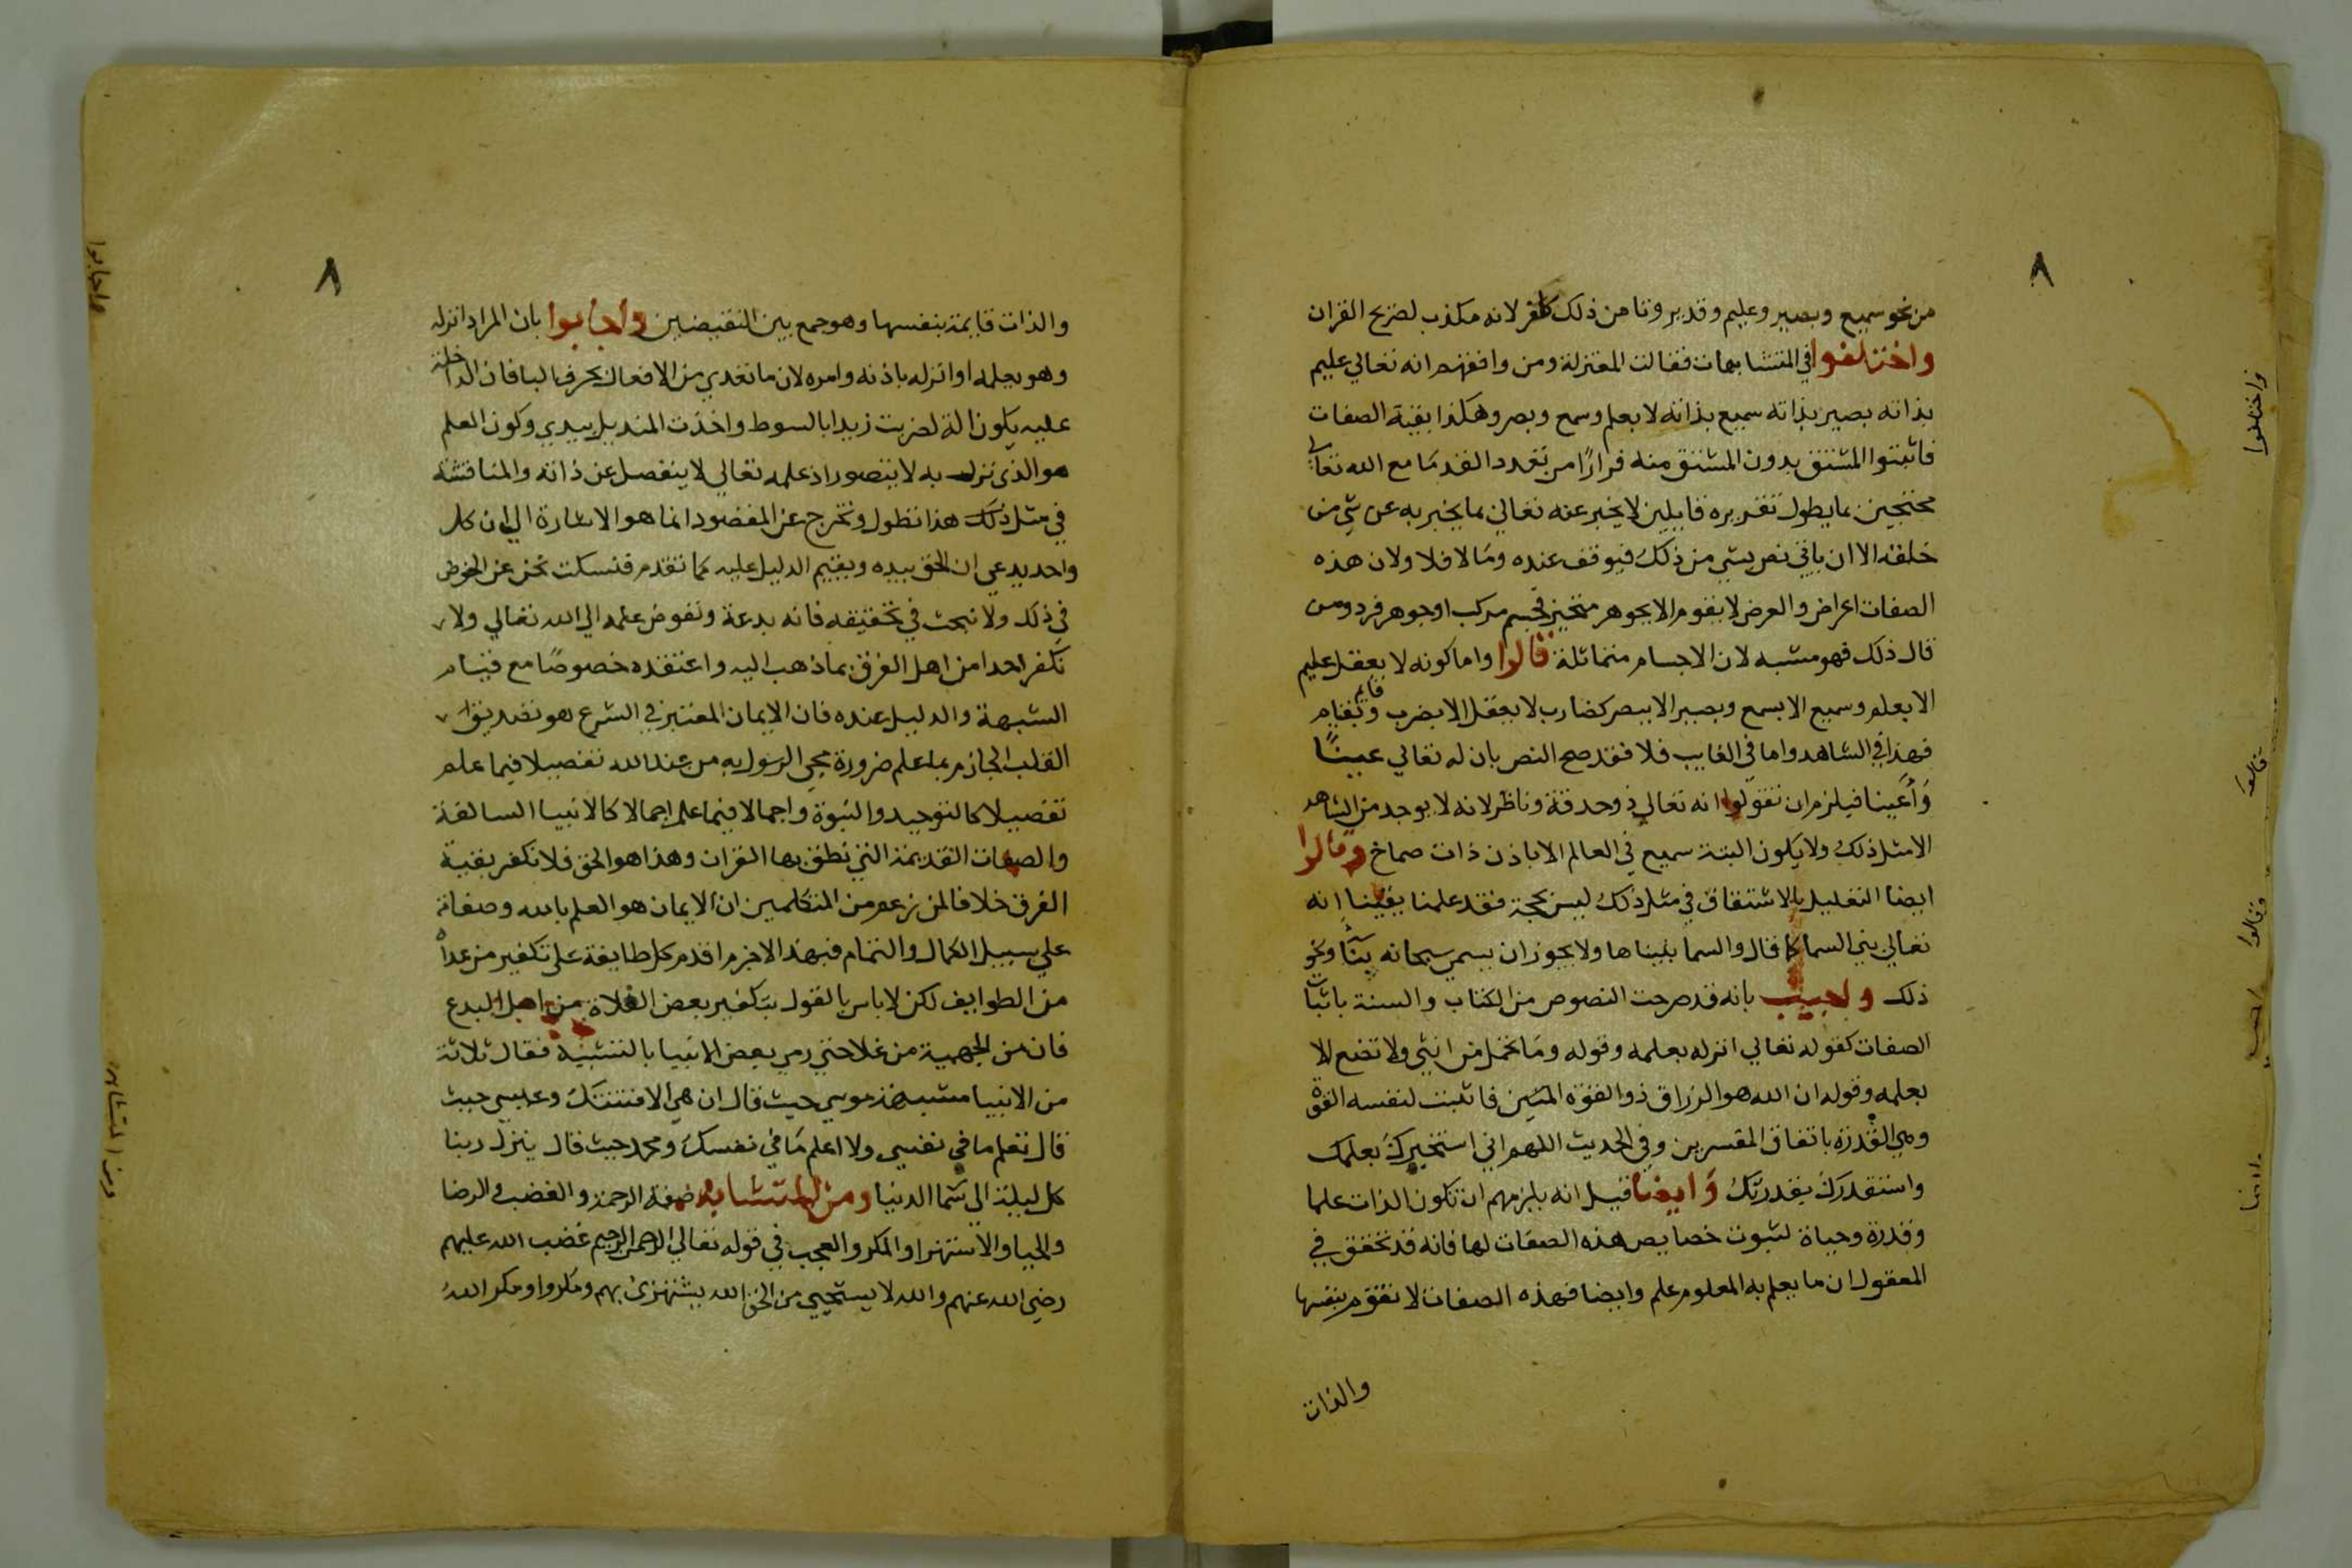 ٨
من نحو سميع وبصير وعليم وقدير ونا من ذلك كافر لانه مكذب لصريح القران
واختلفوا في المتشابهات فقالت المعتزلة ومن وافقهم انه تعالي عليم
بذاته بصير بذاته سميع بذاته لا بعلم وسمع وبصر وهكذا بقية الصفات
فاثبتوا المشتق بدون المشتق منه فرارًا من تعدد القدما مع الله تعالي
محتجين بما يطول تقريره قايلين لا يخبر عنه تعالي بما يخبر به عن شي من
خلقه الا ان ياتي نص بشي من ذلك فيوقف عنده ومالا فلا ولان هذه
الصفات اعراض والعرض لا يقوم الا بجوهر متحيز فجسم مركب او جوهر فرد ومن
قال ذلك فهو مشبه لان الاجسام متماثلة قالوا واما كونه لا يعقل عليم
الا بعلم وسميع الا بسمع وبصير الا ببصر كضارب لا يعقل الا بضرب وقايم بقيام
فهذا في الشاهد واما في الغايب فلا فقد صح النص بان له تعالي عينًا
وأعينا فيلزم ان تقولوا انه تعالي ذو حدقة وناظر لانه لا يوجد من الشاهد
الا مثل ذلك ولا يكون البتة سميع في العالم الا باذن ذات صماخ وقالوا
ايضا التعليل بالاشتقاق في مثل ذلك ليس بحجة فقد علمنا يقينا انه
تعالي بني السما كما قال والسما بنيناها ولا يجوز ان يسمي سبحانه بنّاً ونحو
ذلك واجيب بانه قد صرحت النصوص من الكتاب والسنة باثبات
الصفات كقوله تعالي انزله بعلمه وقوله وما تحمل من انثي ولا تضع الا
بعلمه وقوله ان الله هو الرزاق ذو القوة المتين فاثبت لنفسه القوة
وهي القدرة باتفاق المفسرين وفي الحديث اللهم اني استخيرك بعلمك
واستقدرك بقدرتك وايضا قيل انه يلزمهم ان تكون الذات علما
وقدرة وحياة لثبوت خصايص هذه الصفات لها فانه قد تحقق في
المعقول ان ما يعلم به المعلوم علم وايضا فهذه الصفات لا تقوم بنفسها
والذات
واختلفوا
قالوا
وقالوا
اجيب
ايضا
٨
والذات قايمة بنفسها وهو جمع بين النقيضين واجابوا بان المراد انزله
وهو يعلمه او انزله باذنه وامره لان ما تعدي من الافعال بحرف البا فان الداخلة
عليه يكون الة لضربت زيدا بالسوط واخذت المنديل بيدي وكون العلم
هو الذي نزل به لا يتصور اذ علمه تعالي لا ينفصل عن ذاته والمناقشة
في مثل ذلك هذا تطول وتخرج عن المقصود انما هو الاشارة الي ان كل
واحد يدعي ان الحق بيده ويقيم الدليل عليه كما تقدم فنسكت نحن عن الخوض
في ذلك ولا نبحث في تحقيقه فانه بدعة ونفوض علمه الي الله تعالي ولا
نكفر احدا من اهل الفرق بما ذهب اليه واعتقده خصوصًا مع قيام
الشبهة والدليل عنده فان الايمان المعتبر في الشرع هو تصديق
القلب الجازم بما علم ضرورة مجي الرسول به من عند الله تفصيلا فيما علم
تفصيلا كالتوحيد والنبوة واجمالا فيما علم اجمالا كالانبيا السالفة
والصفات القديمة التي نطق بها القران وهذا هو الحق فلا نكفر بقية
الفرق خلافا لمن زعم من المتكلمين ان الايمان هو العلم بالله وصفاته
علي سبيل الكمال والتمام فبهذا لاجرم اقدم كل طايفة علي تكفير من عداه
من الطوايف لكن لا باس بالقول بتكفير بعض الغلاة من اهل البدع
فان من الجهمية من غلا حتي رمي بعض الانبيا بالتشبيه فقال ثلاثة
من الانبيا مشبهة موسي حيث قال ان هي الا فتنتك وعيسي حيث
قال تعلم ما في نفسي ولا اعلم ما في نفسك ومحمد حيث قال ينزل ربنا
كل ليلة الي سما الدنيا ومن المتشابه صفة الرحمة والغضب والرضا
والحيا والاستهزا والمكر والعجب في قوله تعالي الرحمن الرحيم غضب الله عليهم
رضي الله عنهم والله لا يستحيي من الحق الله يستهزئ بهم ومكروا ومكر الله
واجابوا
ومن المتشابه